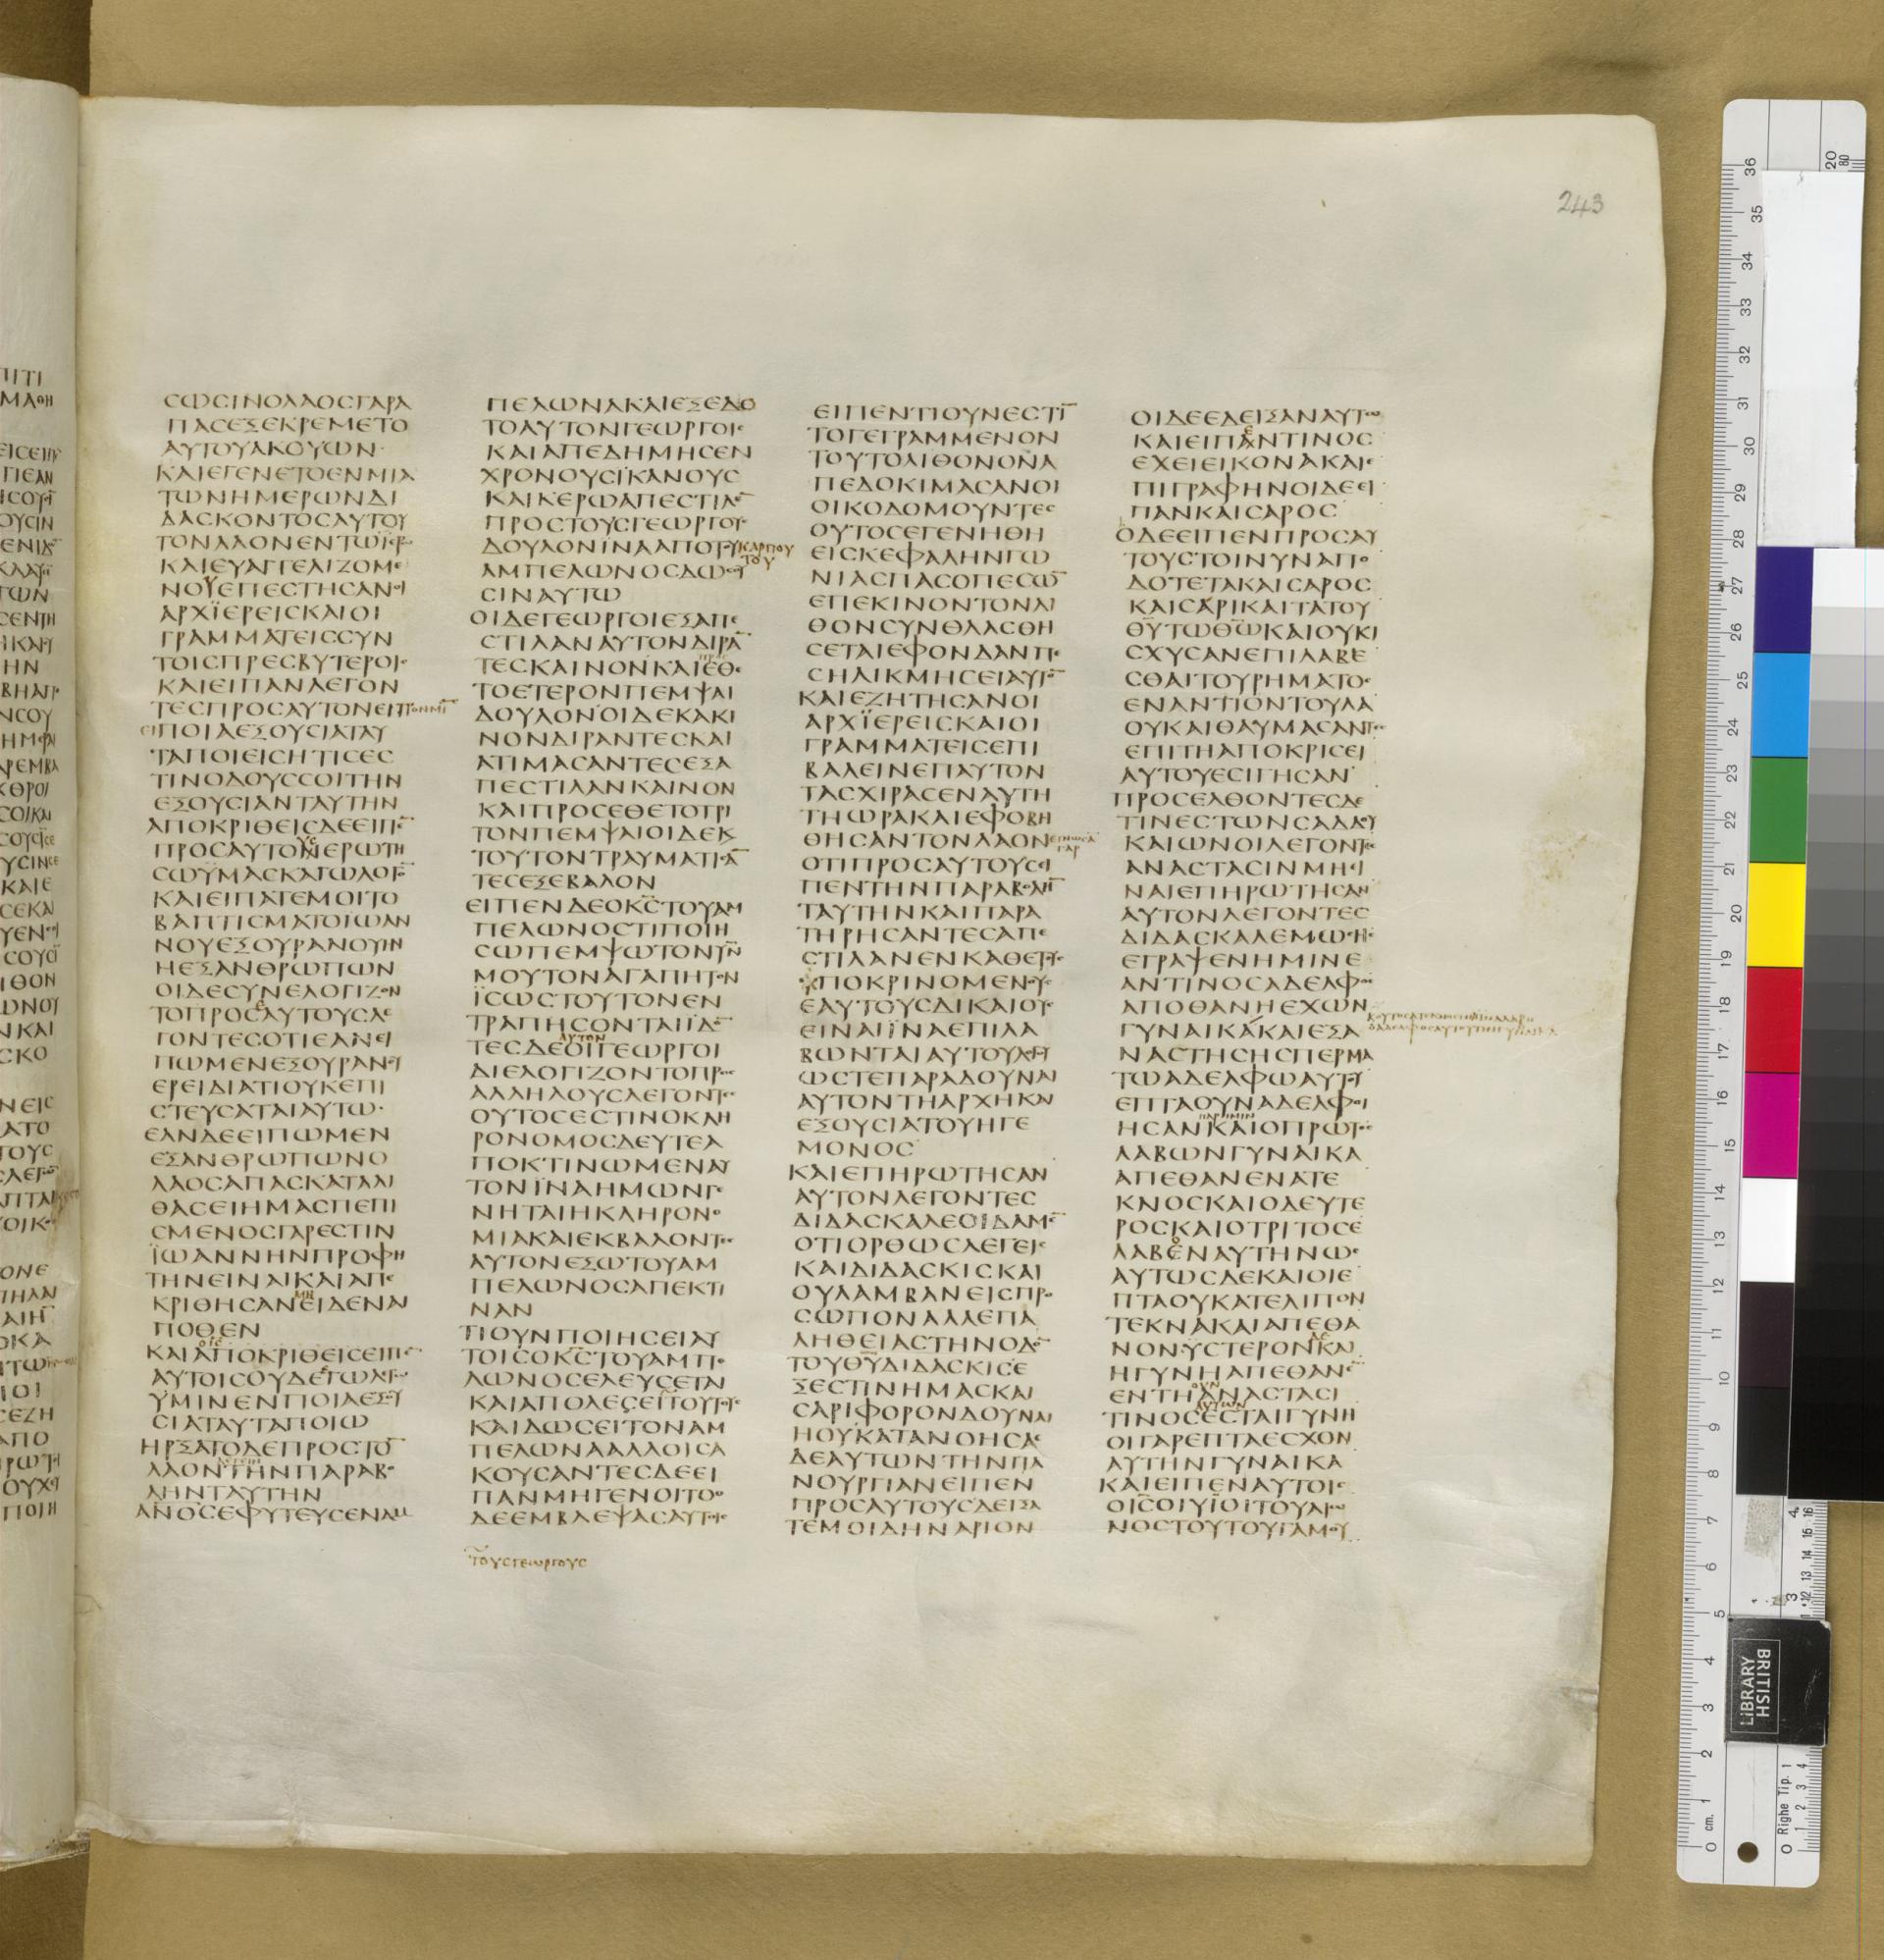 243
ϹΩϹΙΝΟΛΑΟϹΓΑΡΑ
ΠΑϹΕΞΕΚΡΕΜΕΤΟ
ΑΥΤΟΥΑΚΟΥΩΝ·
ΚΑΙΕΓΕΝΕΤΟΕΝΜΙΑ
ΤΩΝΗΜΕΡΩΝΔΙ
ΔΑϹΚΟΝΤΟϹΑΥΤΟΥ
ΤΟΝΛΑΟΝΕΝΤΩΪΕΡ
ΚΑΙΕΥΑΓΓΕΛΙΖΟΜΕ
ΝΟΥΕΠΕϹΤΗϹΑΝΟΙ
ΑΡΧΪΕΡΕΙϹΚΑΙΟΙ
ΓΡΑΜΜΑΤΕΙϹϹΥΝ
ΤΟΙϹΠΡΕϹΒΥΤΕΡΟΙϹ
ΚΑΙΕΙΠΑΝΛΕΓΟΝ
ΤΕϹΠΡΟϹΑΥΤΟΝΕΙΠΟΝΗΜΙ̅
ΕΝΠΟΙΑΕΞΟΥϹΙΑΤΑΥ
ΤΑΠΟΙΕΙϹΗΤΙϹΕϹ
ΤΙΝΟΔΟΥϹϹΟΙΤΗΝ
ΕΞΟΥϹΙΑΝΤΑΥΤΗΝ
ΑΠΟΚΡΙΘΕΙϹΔΕΕΙΠΕ̅
ΠΡΟϹΑΥΤΟΥϹΕΡΩΤΗ
ϹΩΫΜΑϹΚΑΓΩΛΟΓΟ̅
ΚΑΙΕΙΠΑΤΕΜΟΙΤΟ
ΒΑΠΤΙϹΜΑΤΟΪΩΑΝ
ΝΟΥΕΞΟΥΡΑΝΟΥΗΝ
ΗΕΞΑΝΘΡΩΠΩΝ
ΟΙΔΕϹΥΝΕΛΟΓΙΖΟΝ
ΤΟΠΡΟϹΕΑΥΤΟΥϹΛΕ
ΓΟΝΤΕϹΟΤΙΕΑΝΕΙ
ΠΩΜΕΝΕΞΟΥΡΑΝΟΥ
ΕΡΕΙΔΙΑΤΙΟΥΚΕΠΙ
ϹΤΕΥϹΑΤΑΙΑΥΤΩ·
ΕΑΝΔΕΕΙΠΩΜΕΝ
ΕΞΑΝΘΡΩΠΩΝΟ
ΛΑΟϹΑΠΑϹΚΑΤΑΛΙ
ΘΑϹΕΙΗΜΑϹΠΕΠΙ
ϹΜΕΝΟϹΓΑΡΕϹΤΙΝ
ΪΩΑΝΝΗΝΠΡΟΦΗ
ΤΗΝΕΙΝΑΙΚΑΙΑΠΕ
ΚΡΙΘΗϹΑΝΜΗΕΙΔΕΝΑΙ
ΠΟΘΕΝ
ΚΑΙΟΙϹΑΠΟΚΡΙΘΕΙϹΕΙΠΕ̅
ΑΥΤΟΙϹΟΥΔΕΕΓΩΛΕΓΩ
ΫΜΙΝΕΝΠΟΙΑΕΞΟΥ
ϹΙΑΤΑΥΤΑΠΟΙΩ
ΗΡΞΑΤΟΔΕΠΡΟϹΤΟ̅
ΛΑΟΝΛΕΓΕΙΝΤΗΝΠΑΡΑΒΟ
ΛΗΝΤΑΥΤΗΝ
ΑΝΟϹΕΦΥΤΕΥϹΕΝΑΜ
ΠΕΛΩΝΑΚΑΙΕΞΕΔΟ
ΤΟΑΥΤΟΝΓΕΩΡΓΟΙϹ
ΚΑΙΑΠΕΔΗΜΗϹΕΝ
ΧΡΟΝΟΥϹΪΚΑΝΟΥϹ
ΚΑΙΚΕΡΩΑΠΕϹΤΙΛΕ̅
ΠΡΟϹΤΟΥϹΓΕΩΡΓΟΥϹ
ΔΟΥΛΟΝΪΝΑΑΠΟΤΟΥΚΑΡΠΟΥ
ΤΟΥ
ΑΜΠΕΛΩΝΟϹΔΩϹΟΥ
ϹΙΝΑΥΤΩ
ΟΙΔΕΓΕΩΡΓΟΙΕΞΑΠΕ
ϹΤΙΛΑΝΑΥΤΟΝΔΙΡΑ̅
ΤΕϹΚΑΙΝΟΝΚΑΙΠΡΟϹΕΘΕ
ΤΟΕΤΕΡΟΝΠΕΜΨΑΙ
ΔΟΥΛΟΝΟΙΔΕΚΑΚΙ
ΝΟΝΔΙΡΑΝΤΕϹΚΑΙ
ΑΤΙΜΑϹΑΝΤΕϹΕΞΑ
ΠΕϹΤΙΛΑΝΚΑΙΝΟΝ
ΚΑΙΠΡΟϹΕΘΕΤΟΤΡΙ
ΤΟΝΠΕΜΨΑΙΟΙΔΕΚ
ΤΟΥΤΟΝΤΡΑΥΜΑΤΙϹΑ̅
ΤΕϹΕΞΕΒΑΛΟΝ
ΕΙΠΕΝΔΕΟΚ̅Ϲ̅ΤΟΥΑΜ
ΠΕΛΩΝΟϹΤΙΠΟΙΗ
ϹΩΠΕΜΨΩΤΟΝΥ̅Ν̅
ΜΟΥΤΟΝΑΓΑΠΗΤΟΝ
ΪϹΩϹΤΟΥΤΟΝΕΝ
ΤΡΑΠΗϹΟΝΤΑΙΪΔΟ̅
ΤΕϹΔΕΑΥΤΟΝΟΙΓΕΩΡΓΟΙ
ΔΙΕΛΟΓΙΖΟΝΤΟΠΡΟϹ
ΑΛΛΗΛΟΥϹΛΕΓΟΝΤΕϹ
ΟΥΤΟϹΕϹΤΙΝΟΚΛΗ
ΡΟΝΟΜΟϹΔΕΥΤΕΑ
ΠΟΚΤΙΝΩΜΕΝΑΥ
ΤΟΝΪΝΑΗΜΩΝΓΕ
ΝΗΤΑΙΗΚΛΗΡΟΝΟ
ΜΙΑΚΑΙΕΚΒΑΛΟΝΤΕϹ
ΑΥΤΟΝΕΞΩΤΟΥΑΜ
ΠΕΛΩΝΟϹΑΠΕΚΤΙ
ΝΑΝ
ΤΙΟΥΝΠΟΙΗϹΕΙΑΥ
ΤΟΙϹΟΚ̅Ϲ̅ΤΟΥΑΜΠΕ
ΛΩΝΟϹΕΛΕΥϹΕΤΑΙ
ΚΑΙΑΠΟΛΕϹΕΙΤΟΥΤΟΥϹ
ΚΑΙΔΩϹΕΙΤΟΝΑΜ
ΠΕΛΩΝΑΑΛΛΟΙϹΑ
ΚΟΥϹΑΝΤΕϹΔΕΕΙ
ΠΑΝΜΗΓΕΝΟΙΤΟΟ
ΔΕΕΜΒΛΕΨΑϹΑΥΤΟΙϹ
ΤΟΥϹΓΕΩΡΓΟΥϹ
ΕΙΠΕΝΤΙΟΥΝΕϹΤΙ̅
ΤΟΓΕΓΡΑΜΜΕΝΟΝ
ΤΟΥΤΟΛΙΘΟΝΟΝΑ
ΠΕΔΟΚΙΜΑϹΑΝΟΙ
ΟΙΚΟΔΟΜΟΥΝΤΕϹ
ΟΥΤΟϹΕΓΕΝΗΘΗ
ΕΙϹΚΕΦΑΛΗΝΓΩ
ΝΙΑϹΠΑϹΟΠΕϹΩ̅
ΕΠΕΚΙΝΟΝΤΟΝΛΙ
ΘΟΝϹΥΝΘΛΑϹΘΗ
ϹΕΤΑΙΕΦΟΝΔΑΝΠΕ
ϹΗΛΙΚΜΗϹΕΙΑΥΤΟ̅
ΚΑΙΕΖΗΤΗϹΑΝΟΙ
ΑΡΧΪΕΡΕΙϹΚΑΙΟΙ
ΓΡΑΜΜΑΤΕΙϹΕΠΙ
ΒΑΛΕΙΝΕΠΑΥΤΟΝ
ΤΑϹΧΙΡΑϹΕΝΑΥΤΗ
ΤΗΩΡΑΚΑΙΕΦΟΒΗ
ΘΗϹΑΝΤΟΝΛΑΟΝΕΓΝΩϹΑ̅
ΓΑΡ
ΟΤΙΠΡΟϹΑΥΤΟΥϹΕΙ
ΠΕΝΤΗΝΠΑΡΑΒΟΛΗ̅
ΤΑΥΤΗΝΚΑΙΠΑΡΑ
ΤΗΡΗϹΑΝΤΕϹΑΠΕ
ϹΤΙΛΑΝΕΝΚΑΘΕΤΟΥϹ
ΫΠΟΚΡΙΝΟΜΕΝΟΥϹ
ΕΑΥΤΟΥϹΔΙΚΑΙΟΥϹ
ΕΙΝΑΙΪΝΑΕΠΙΛΑ
ΒΩΝΤΑΙΑΥΤΟΥΛΟΓΟΥ
ΩϹΤΕΠΑΡΑΔΟΥΝΑΙ
ΑΥΤΟΝΤΗΑΡΧΗΚΑΙ
ΕΞΟΥϹΙΑΤΟΥΗΓΕ
ΜΟΝΟϹ
ΚΑΙΕΠΗΡΩΤΗϹΑΝ
ΑΥΤΟΝΛΕΓΟΝΤΕϹ
ΔΙΔΑϹΚΑΛΕΟΙΔΑΜΕ̅
ΟΤΙΟΡΘΩϹΛΕΓΕΙϹ
ΚΑΙΔΙΔΑϹΚΙϹΚΑΙ
ΟΥΛΑΜΒΑΝΕΙϹΠΡΟ
ϹΩΠΟΝΑΛΛΕΠΑ
ΛΗΘΕΙΑϹΤΗΝΟΔΟ̅
ΤΟΥΘ̅Υ̅ΔΙΔΑϹΚΙϹΕ
ΞΕϹΤΙΝΗΜΑϹΚΑΙ
ϹΑΡΙΦΟΡΟΝΔΟΥΝΑΙ
ΗΟΥΚΑΤΑΝΟΗϹΑϹ
ΔΕΑΥΤΩΝΤΗΝΠΑ
ΝΟΥΡΓΙΑΝΕΙΠΕΝ
ΠΡΟϹΑΥΤΟΥϹΔΕΙΞΑ
ΤΕΜΟΙΔΗΝΑΡΙΟΝ
ΟΙΔΕΕΔΕΙΞΑΝΑΥΤΩ
ΚΑΙΕΙΠΕΝΤΙΝΟϹ
ΕΧΕΙΕΙΚΟΝΑΚΑΙΕ
ΠΙΓΡΑΦΗΝΟΙΔΕΕΙ
ΠΑΝΚΑΙϹΑΡΟϹ
ΟΔΕΕΙΠΕΝΠΡΟϹΑΥ
ΤΟΥϹΤΟΙΝΥΝΑΠΟ
ΔΟΤΕΤΑΚΑΙϹΑΡΟϹ
ΚΑΙϹΑΡΙΚΑΙΤΑΤΟΥ
Θ̅Υ̅ΤΩΘ̅Ω̅ΚΑΙΟΥΚΙ
ϹΧΥϹΑΝΕΠΙΛΑΒΕ
ϹΘΑΙΤΟΥΡΗΜΑΤΟϹ
ΕΝΑΝΤΙΟΝΤΟΥΛΑ
ΟΥΚΑΙΘΑΥΜΑϹΑΝΤΕϹ
ΕΠΙΤΗΑΠΟΚΡΙϹΕΙ
ΑΥΤΟΥΕϹΙΓΗϹΑΝ
ΠΡΟϹΕΛΘΟΝΤΕϹΔΕ
ΤΙΝΕϹΤΩΝϹΑΔΔΟΥ
ΚΑΙΩΝΟΙΛΕΓΟΝΤΕϹ
ΑΝΑϹΤΑϹΙΝΜΗΕΙ
ΝΑΙΕΠΗΡΩΤΗϹΑΝ
ΑΥΤΟΝΛΕΓΟΝΤΕϹ
ΔΙΔΑϹΚΑΛΕΜΩΫϹΗϹ
ΕΓΡΑΨΕΝΗΜΙΝΕ
ΑΝΤΙΝΟϹΑΔΕΛΦΟϹ
ΑΠΟΘΑΝΗΕΧΩΝ
ΓΥΝΑΙΚΑΚΑΙΕΞΑ
ΝΑϹΤΗϹΗϹΠΕΡΜΑ
ΤΩΑΔΕΛΦΩΑΥΤΟΥ
ΕΠΤΑΟΥΝΑΔΕΛΦΟΙ
ΗϹΑΝΠΑΡΗΜΙΝΚΑΙΟΠΡΩΤΟϹ
ΛΑΒΩΝΓΥΝΑΙΚΑ
ΑΠΕΘΑΝΕΝΑΤΕ
ΚΝΟϹΚΑΙΟΔΕΥΤΕ
ΡΟϹΚΑΙΟΤΡΙΤΟϹΕ
ΛΑΒΕΝΑΥΤΗΝΩϹ
ΑΥΤΩϹΔΕΚΑΙΟΙΕ
ΠΤΑΟΥΚΑΤΕΛΙΠΟΝ
ΤΕΚΝΑΚΑΙΑΠΕΘΑ
ΝΟΝΥϹΤΕΡΟΝΔΕΚΑΙ
ΗΓΥΝΗΑΠΕΘΑΝΕ̅
ΕΝΤΗΟΥΝΑΝΑϹΤΑϹΙ
ΤΙΝΟϹΑΥΤΩΝΕϹΤΑΙΓΥΝΗ
ΟΙΓΑΡΕΠΤΑΕϹΧΟΝ
ΑΥΤΗΝΓΥΝΑΙΚΑ
ΚΑΙΕΙΠΕΝΑΥΤΟΙϹ
ΟΙ̅Ϲ̅ΟΙΥΪΟΙΤΟΥΑΙΩ
ΝΟϹΤΟΥΤΟΥΓΑΜΟΥ